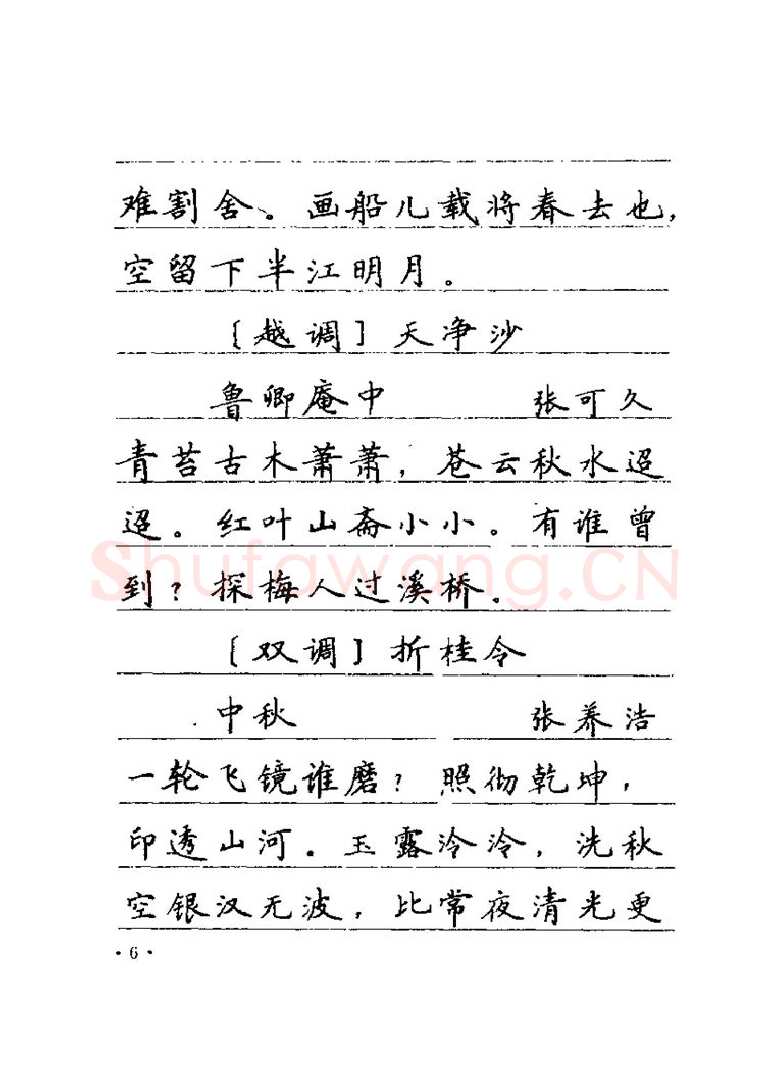 难割舍。画船儿载将春去也，
空留下半江明月。
［越调］天净沙
鲁卿庵中 张可久
青苔古木萧萧，苍云秋水迢
迢。红叶山斋小小。有谁曾
到？探梅人过溪桥。
［双调］折桂令
中秋 张养浩
一轮飞镜谁磨？照彻乾坤，
印透山河。玉露泠泠，洗秋
空银汉无波，比常夜清光更
·6·
Shufawang.CN